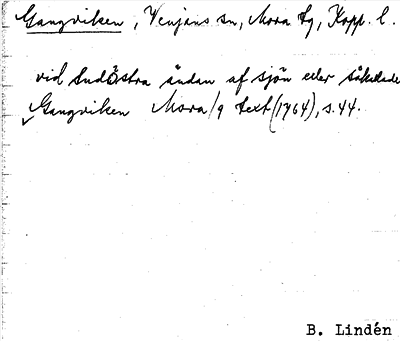 Gangviken, Venjans sn, Mora tg, Kopp. l.
vid Sudöstra ändan af sjön eler såkalade
Gangviken Mora/9 text (1764), s. 44.
B. Lindén